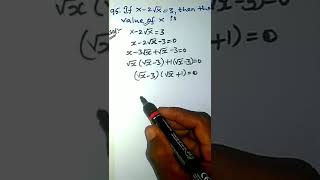 95. If x-2√x=3, then the
value of x is
Sol:- x-2√x=3
x-2√x-3=0
x-3√x+√x-3=0
√x(√x-3)+1(√x-3)=0
(√x-3)(√x+1)=0